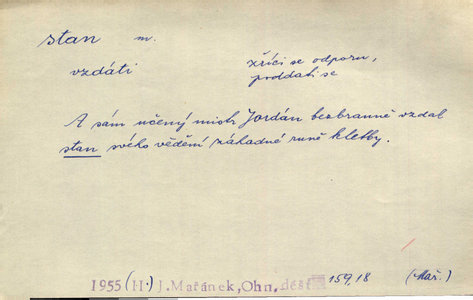 stan m.
vzdáti zříci se odporu,
poddati se
A sám učený mistr Jordán bezbranně vzdal
stan svého vědění záhadné runě kletby.
1955 (H.) J.Mařánek, Ohn, déšť 159,18 (Mař.)